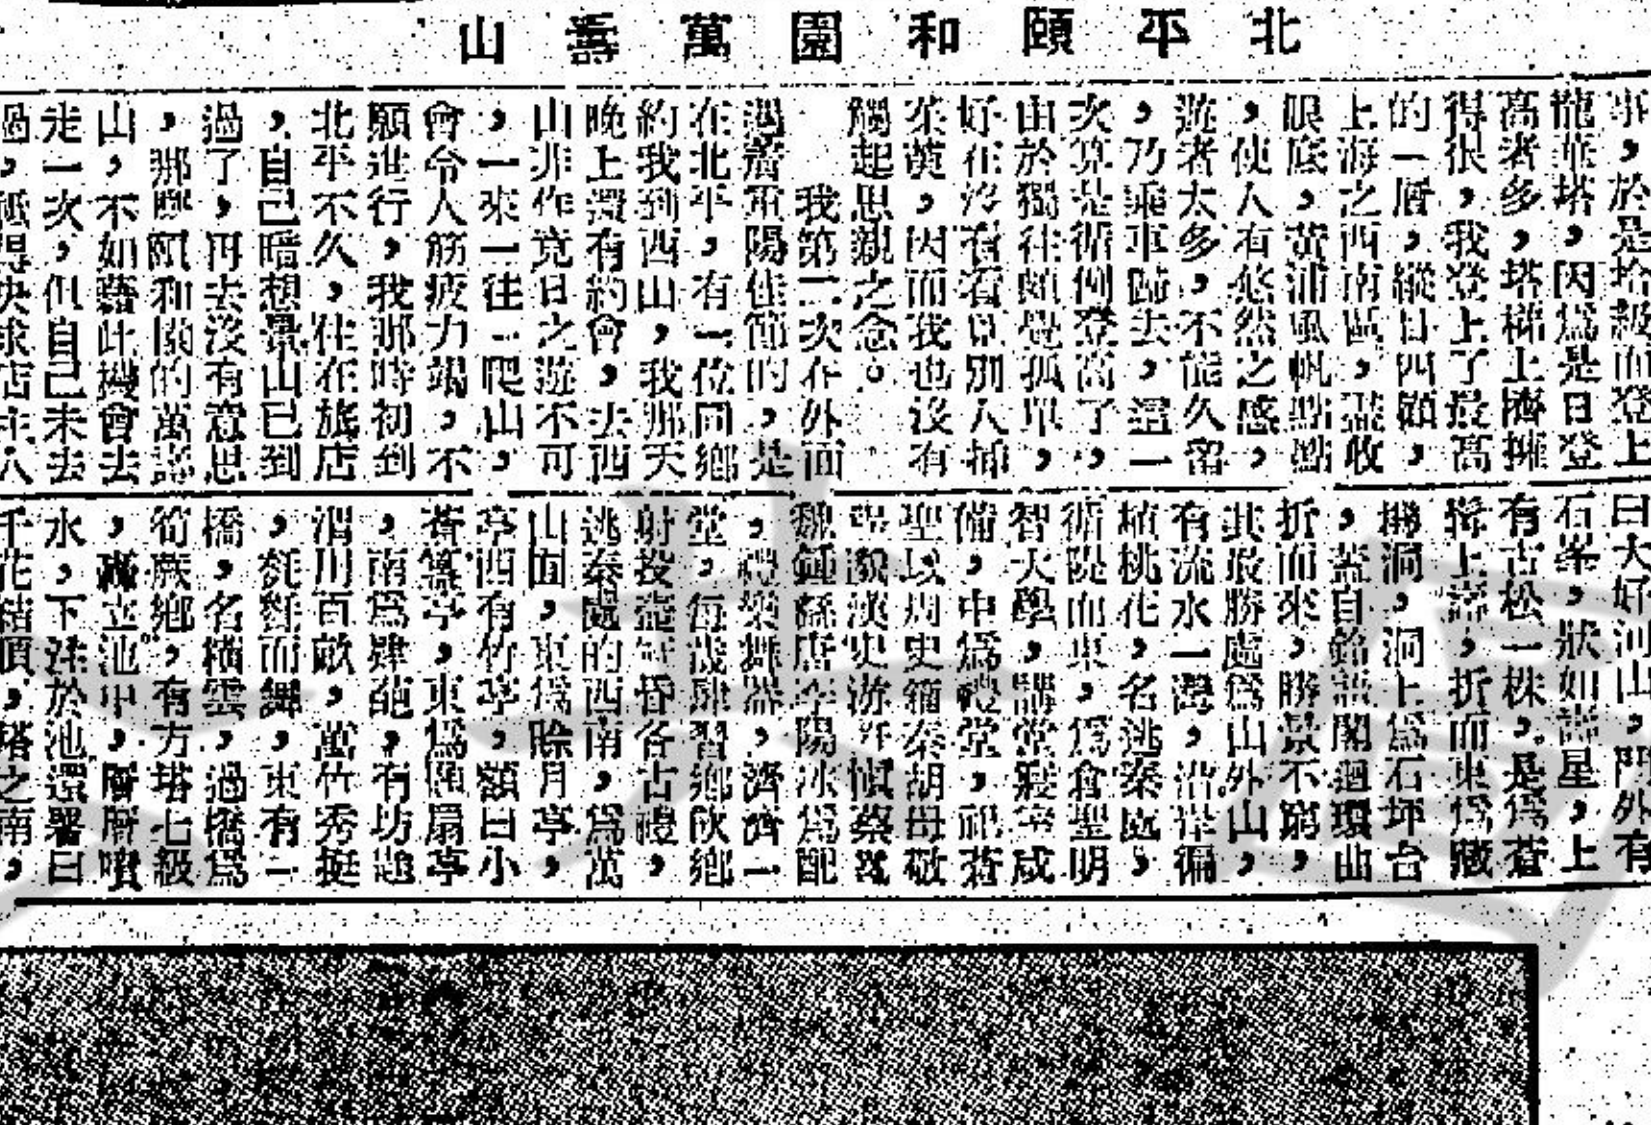 北平頤和園萬壽山
事，於是拾級而登上
龍華塔，因爲是日登
高者多，塔梯上擠擁
得很，我登上了最高
的一層，縱目四顧，
上海之西南區，盡收
眼底，黃浦風帆點點
，使人有悠然之感，
遊者太多，不能久留
，乃乘車歸去，這一
次算是循例登高了，
由於獨往頗覺孤單，
好在沒有看見別人插
茱萸，因而我也沒有
觸起思親之念。
我第二次在外面
過舊重陽佳節的，是
在北平，有一位同鄉
約我到西山，我那天
晚上還有約會，去西
山非作竟日之遊不可
，一來一往一爬山，
會令人筋疲力竭，不
願進行，我那時初到
北平不久，住在旅店
，自己暗想景山已到
過了，再去沒有意思
，那麽頤和園的萬壽
山，不如藉此機會去
走一次，但自己未去
過，祗得央求店主人
曰大好河山，門外有
石峯，狀如壽星，上
有古松一株，是爲蒼
髯上壽，折而東爲藏
洞，洞上爲石坪台
，蓋自銘語閣迴環曲
折而來，勝景不窮，
其最勝處爲山外山，
有流水一灣，沿岸徧
植桃花，名逃秦處，
循隄而東，爲倉聖明
智大學，講堂寢室咸
備，中爲禮堂，祀蒼
聖以周史籀秦胡毋敬
漢史游許愼蔡邕
魏鍾繇唐李陽冰爲配
，禮樂舞器，濟濟一
堂，每歲肄習鄉飲鄉
射投壺冠昏各古禮，
逃秦處的西南，爲萬
山面，東爲賒月亭，
亭西有竹亭，額曰小
蒼筤亭，東爲頤扇亭
，南爲肄葩，有坊題
渭川百畝，萬竹秀挺
，毿毿而舞，東有一
橋，名橫雲，過橋爲
筍蕨鄉，有方塔七級
，矗立池中，層層噴
水，下注於池，還署曰
千花結頂，塔之南，